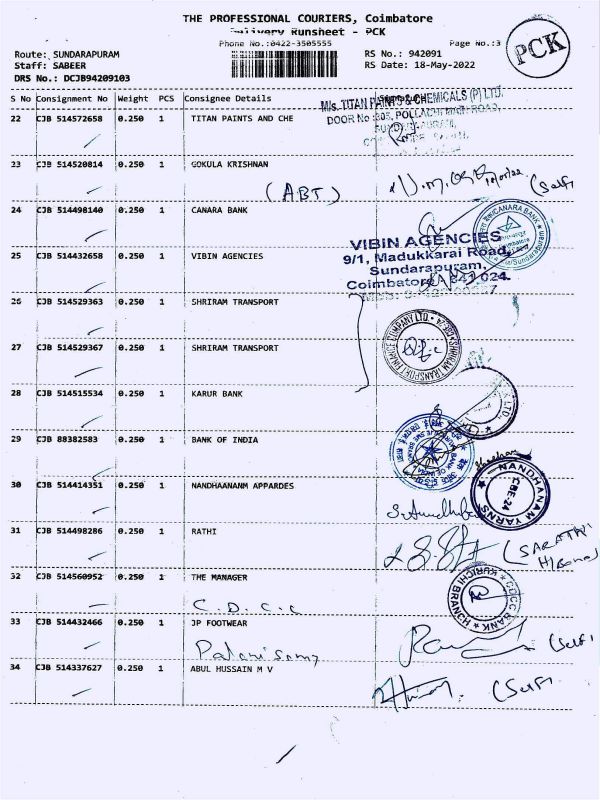 THE PROFESSIONAL COURIERS, Coimbatore
Delivery Runsheet - PCK
Phone No.:0422-3505555
Page No.:3
PCK
Route: SUNDARAPURAM
RS No.: 942091
Staff: SABEER
RS Date: 18-May-2022
DRS No.: DCJB94209103
S No Consignment No Weight PCS Consignee Details
M/s. TITAN PAINTS & CHEMICALS (P) LTD.
22 CJB 514572658 0.250 1 TITAN PAINTS AND CHE
DOOR No 203, POLLACHI MAIN ROAD,
23 CJB 514520814 0.250 1 GOKULA KRISHNAN
(ABT)
(Self)
24 CJB 514498140 0.250 1 CANARA BANK
CANARA BANK
25 CJB 514432658 0.250 1 VIBIN AGENCIES
VIBIN AGENCIES
9/1, Madukkarai Road,
Sundarapuram,
Coimbatore 641 024.
26 CJB 514529363 0.250 1 SHRIRAM TRANSPORT
27 CJB 514529367 0.250 1 SHRIRAM TRANSPORT
SHRIRAM TRANSPORT FINANCE COMPANY LTD.
28 CJB 514515534 0.250 1 KARUR BANK
29 CJB 88382583 0.250 1 BANK OF INDIA
30 CJB 514414351 0.250 1 NANDHAANANM APPARDES
NANDHANAM YARNS
CBE-24
31 CJB 514498286 0.250 1 RATHI
(SARATHI
32 CJB 514560952 0.250 1 THE MANAGER
C.D.C.C
CDCC BANK KURICHI BRANCH
33 CJB 514432466 0.250 1 JP FOOTWEAR
Palanisamy
(Self)
34 CJB 514337627 0.250 1 ABUL HUSSAIN M V
(Self)